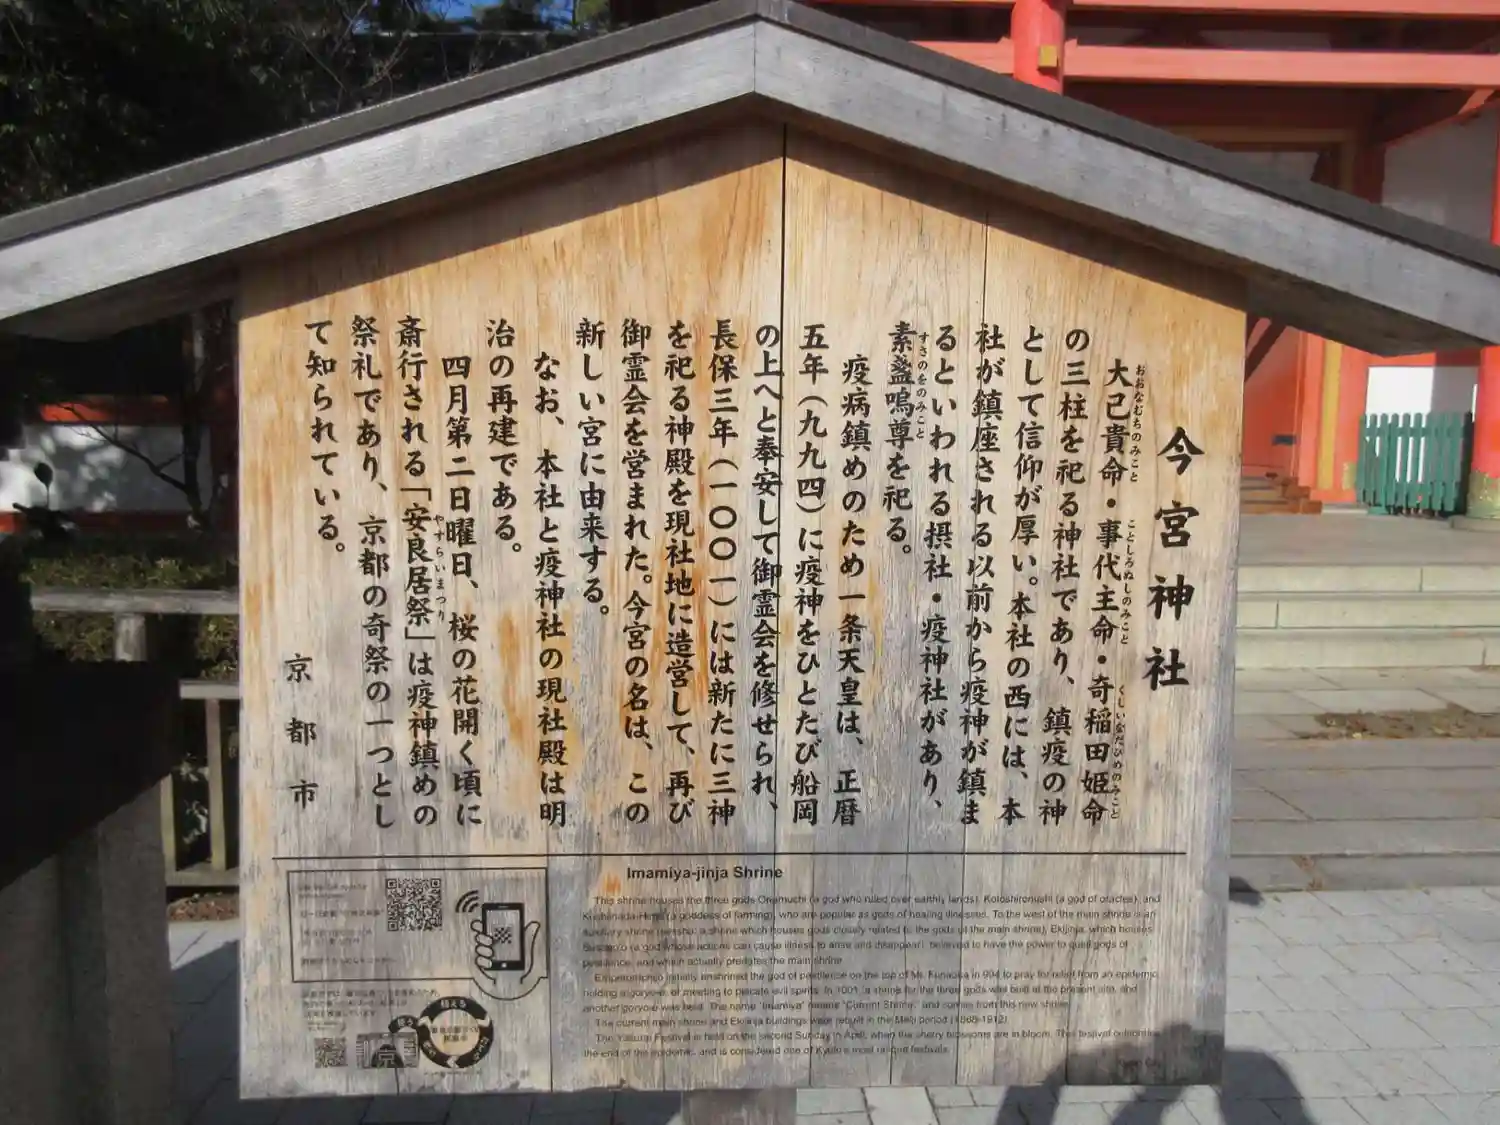 今宮神社
大己貴命・事代主命・奇稲田姫命
おおなむちのみこと
ことしろぬしのみこと
くしいなだひめのみこと
の三柱を祀る神社であり、鎮疫の神
として信仰が厚い。本社の西には、本
社が鎮座される以前から疫神が鎮ま
るといわれる摂社・疫神社があり、
素盞嗚尊を祀る。
すさのをのみこと
疫病鎮めのため一条天皇は、正暦
五年(九九四)に疫神をひとたび船岡
の上へと奉安して御霊会を修せられ、
長保三年(一〇〇一)には新たに三神
を祀る神殿を現社地に造営して、再び
御霊会を営まれた。今宮の名は、この
新しい宮に由来する。
なお、本社と疫神社の現社殿は明
治の再建である。
四月第二日曜日、桜の花開く頃に
斎行される「安良居祭」は疫神鎮めの
やすらいまつり
祭礼であり、京都の奇祭の一つとし
て知られている。
京都市
Imamiya-jinja Shrine
This shrine houses the three gods Onamuchi (a god who ruled over earthly lands), Kotoshironushi (a god of oracles), and
Kushinada-Hime (a goddess of farming), who are popular as gods of healing illnesses. To the west of the main shrine is an
auxiliary shrine (sessha: a shrine which houses gods closely related to the gods of the main shrine), Ekijinja, which houses
Susano'o (a god whose actions can cause illness to arise and disappear), believed to have the power to quell gods of
pestilence, and which actually predates the main shrine.
Emperor Ichijo initially enshrined the god of pestilence on the top of Mt. Funaoka in 994 to pray for relief from an epidemic,
holding a goryo-e, or meeting to placate evil spirits. In 1001, a shrine for the three gods was built at the present site, and
another goryo-e was held. The name "Imamiya" means "Current Shrine," and comes from this new shrine.
The current main shrine and Ekijinja buildings were rebuilt in the Meiji period (1868-1912).
The Yasurai Festival is held on the second Sunday in April, when the cherry blossoms are in bloom. This festival celebrates
the end of the epidemic, and is considered one of Kyoto's most unique festivals.